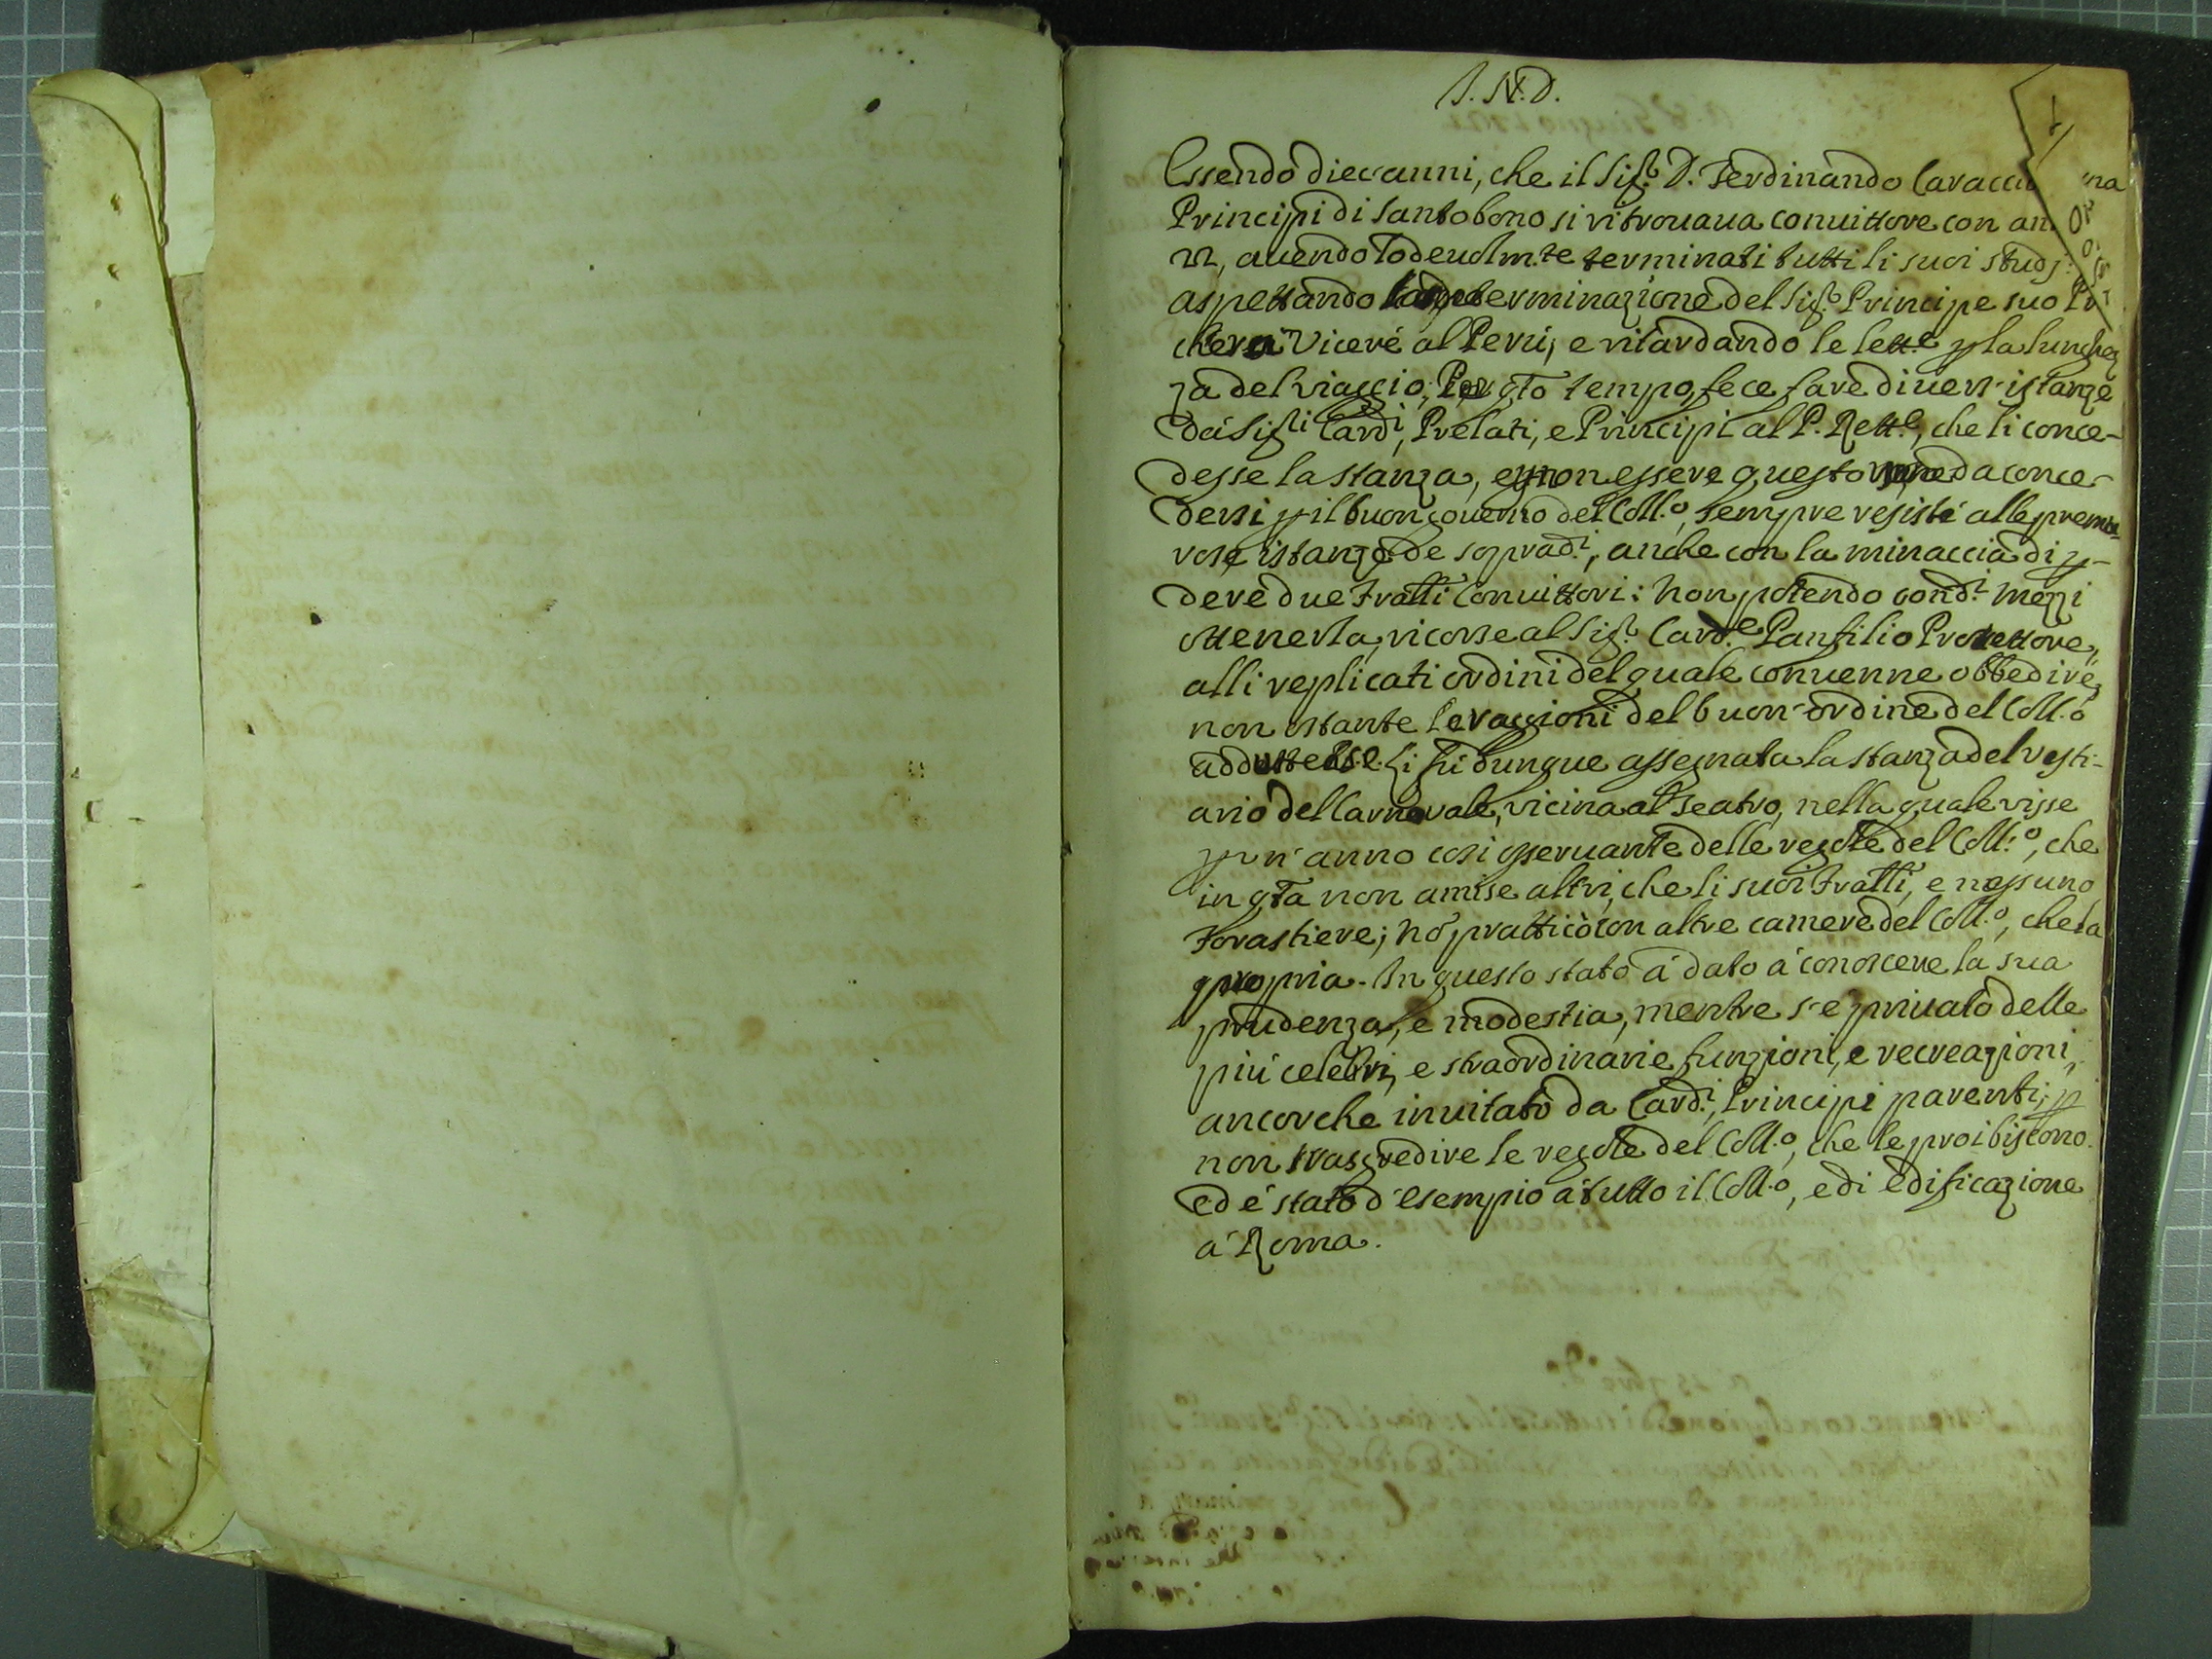 I. N. D.
1
Essendo dieci anni, che il Sig.r D. Ferdinando Caracci
Principi di Santobono si ritrouaua conuittore con an
22, auendo lodeuolm.te terminati tutti li suoi studj:
aspettando la determinazione del Sig.r Principe suo
che và Viceré al Perù, e ritardando le lett.e p la lunghez
za del viaggio; Per qto tempo fece fare diuers' istanze
dá Sig.li Card.i, Prelati, e Principi al P. Rett.e, che li conce-
desse la stanza, e p non essere questo da conce-
dersi p il buon gouerno del Coll.o, sempre resisté alle premu
rose istanze de soprad.i, anche con la minaccia di p-
dere due Fratlli Conuittori: Non potendo con d.i mezzi
ottenerla, ricorse al Sig.r Card.e Panfilio Protettore,
alli replicati ordini del quale conuenne obbedire,
non ostante le raggioni del buon-ordine del Coll.o
addotte Li fù dunque assegnata la stanza del vesti-
ario del Carnevale, vicina al Teatro, nella quale visse
p un' anno così osseruante delle regole del Coll.o, che
in qta non amise altri, che li suoi Fratlli, e nessuno
Forastiere; nõ pratticò con altre camere del Coll.o, che la
propria. In questo stato á dato á conoscere la sua
prudenza, e modestia, mentre s'e priuato delle
più celebri, e straordinarie funzioni, e recreazioni,
ancorche inuitato da Card.i, Principi parenti; p
non trasgredire le regole del Coll.o, che le proibiscono.
ed é stato d'esempio á tutto il Coll.o, e di edificazione
á Roma.